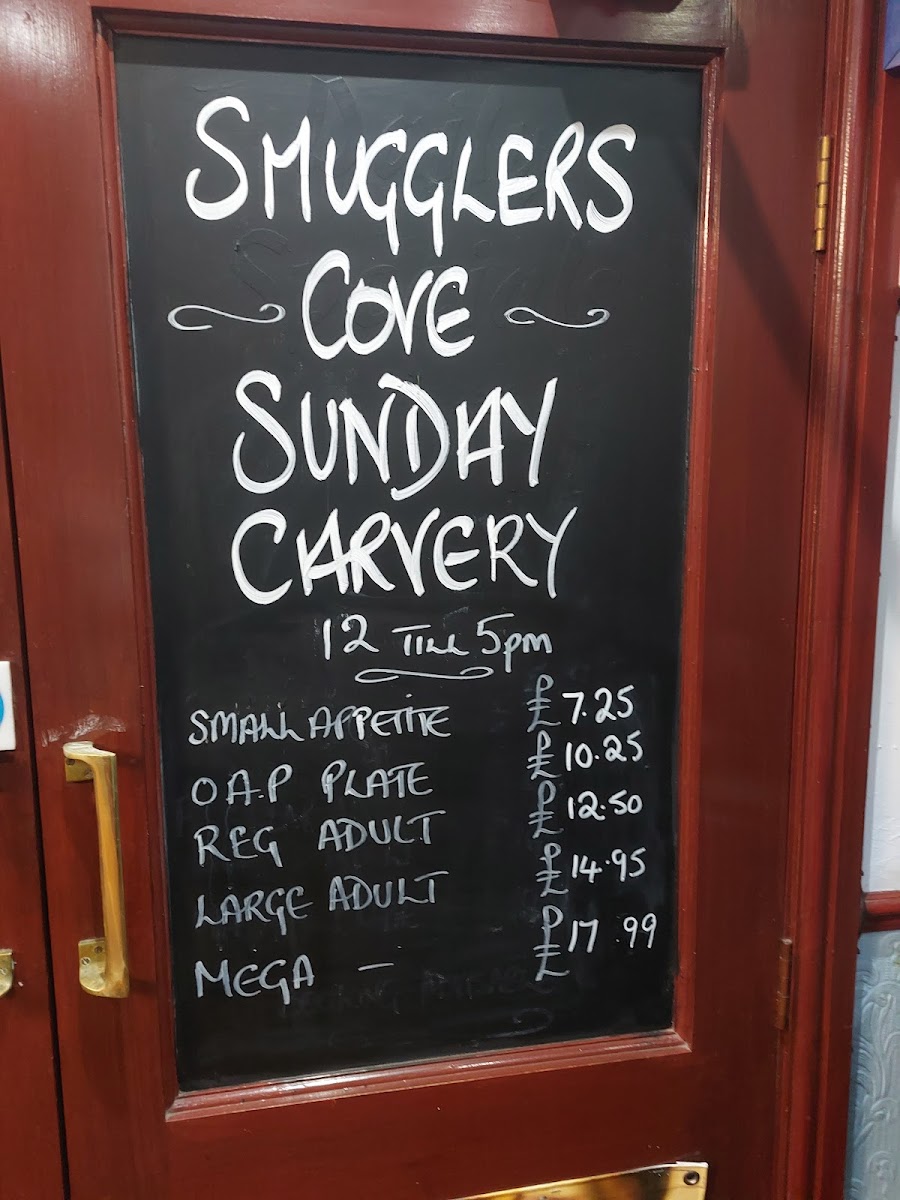 SMUGGLERS
COVE
SUNDAY
CARVERY
12 TILL 5pm
SMALL APPETITE £7.25
O.A.P PLATE £10.25
REG ADULT £12.50
LARGE ADULT £14.95
MEGA — £17.99